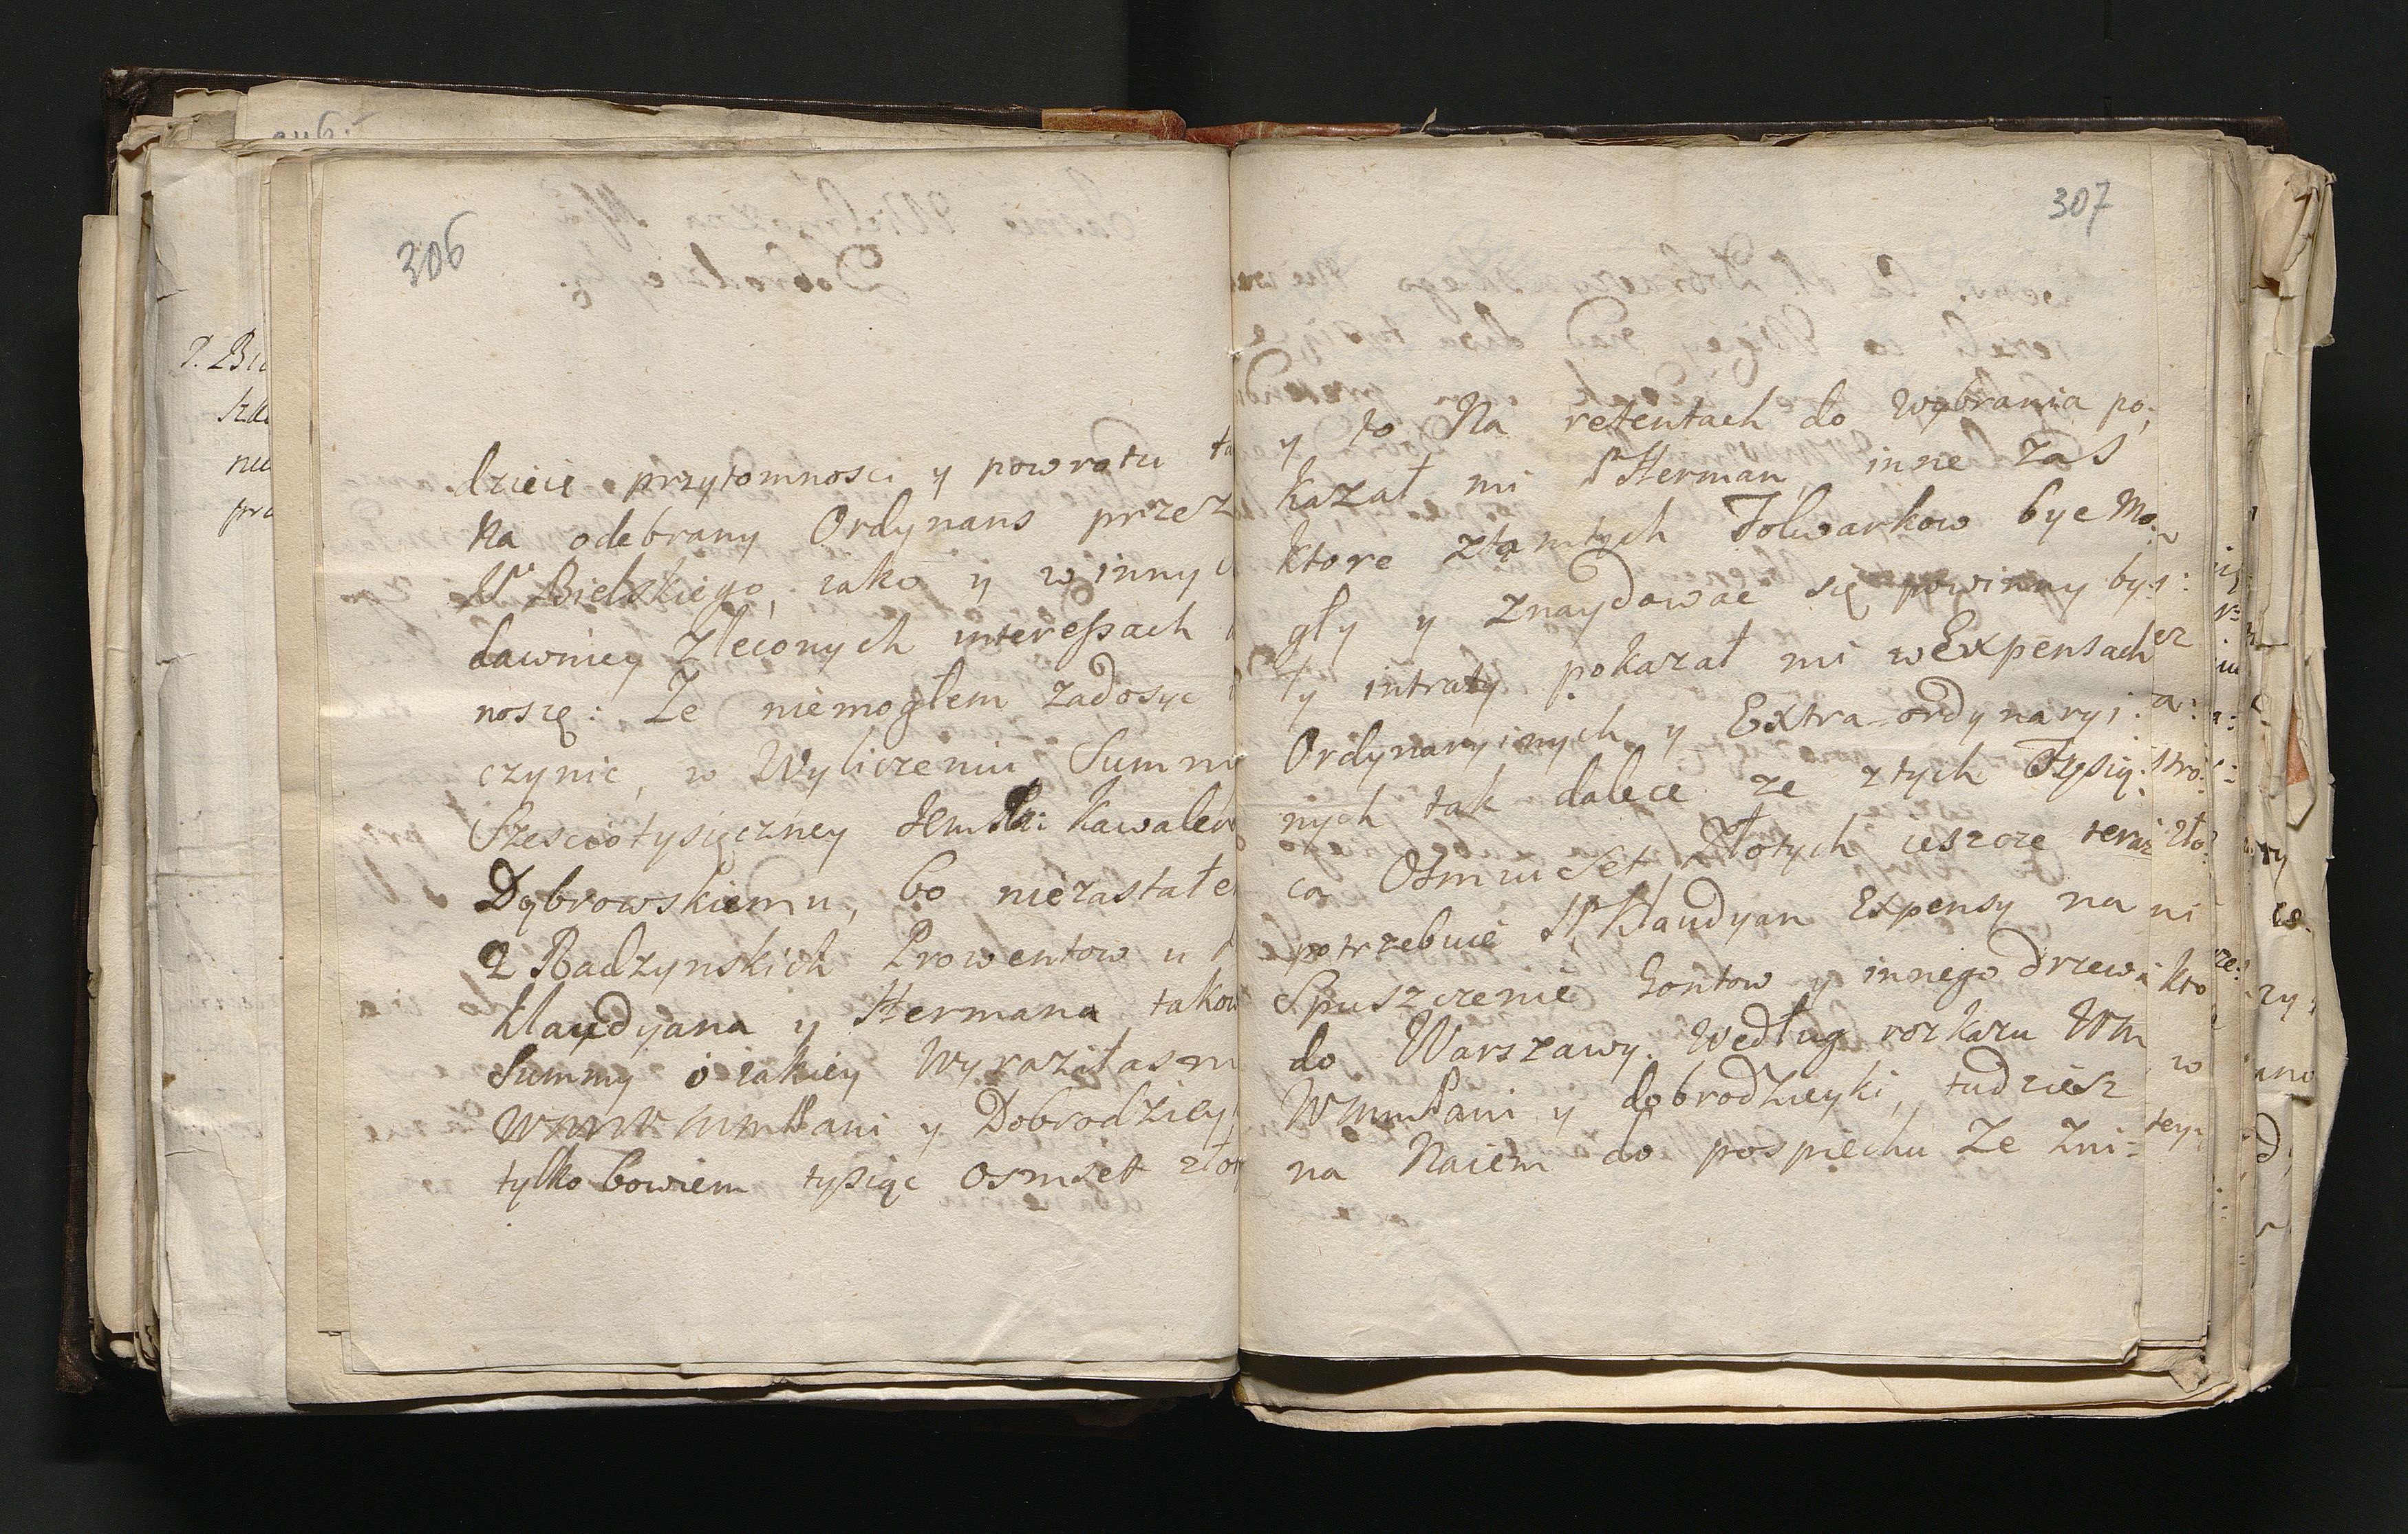 306
dzieie przytomnosci y powrotu
Na odebrany Ordynans przez
JP Bielskiego, iako y w innyc
dawniey Zleconych interessach
noszę: Ze niemogłem zadosyc
czynic, w Wyliczeniu Summy
Szesciotysięczney Kawalero
Dąbrowskiemu, bo niezastałe
z Radzynskich Prowentow u
Klaudyana y Hermana takow
Summy o iakiey Wyraziłas m
WMM Pani y Dobrodziey
tylko bowiem tysiąc osmset zło
307
y to Na retentach do wybrania po:
kazał mi JP Herman, inne zas
ktore ztamtych Folwarkow byc mo:
gły y znaydowac się powinny by:
ły intraty pokazał mi w Expensach
Ordynaryinych y Extra-ordynaryi:
nych tak dalece ze z tych Tysią:
ca Osmiu Set Złotych ieszcze teraz
potrzebuie JP Klaudyan Expensy na
Spuszczenie Gontow y innego drzewa
do Warszawy. Według rozkazu WM
WMM Pani y dobrodzieyki, tudziesz
na Naiem do pospiechu Ze Zni: